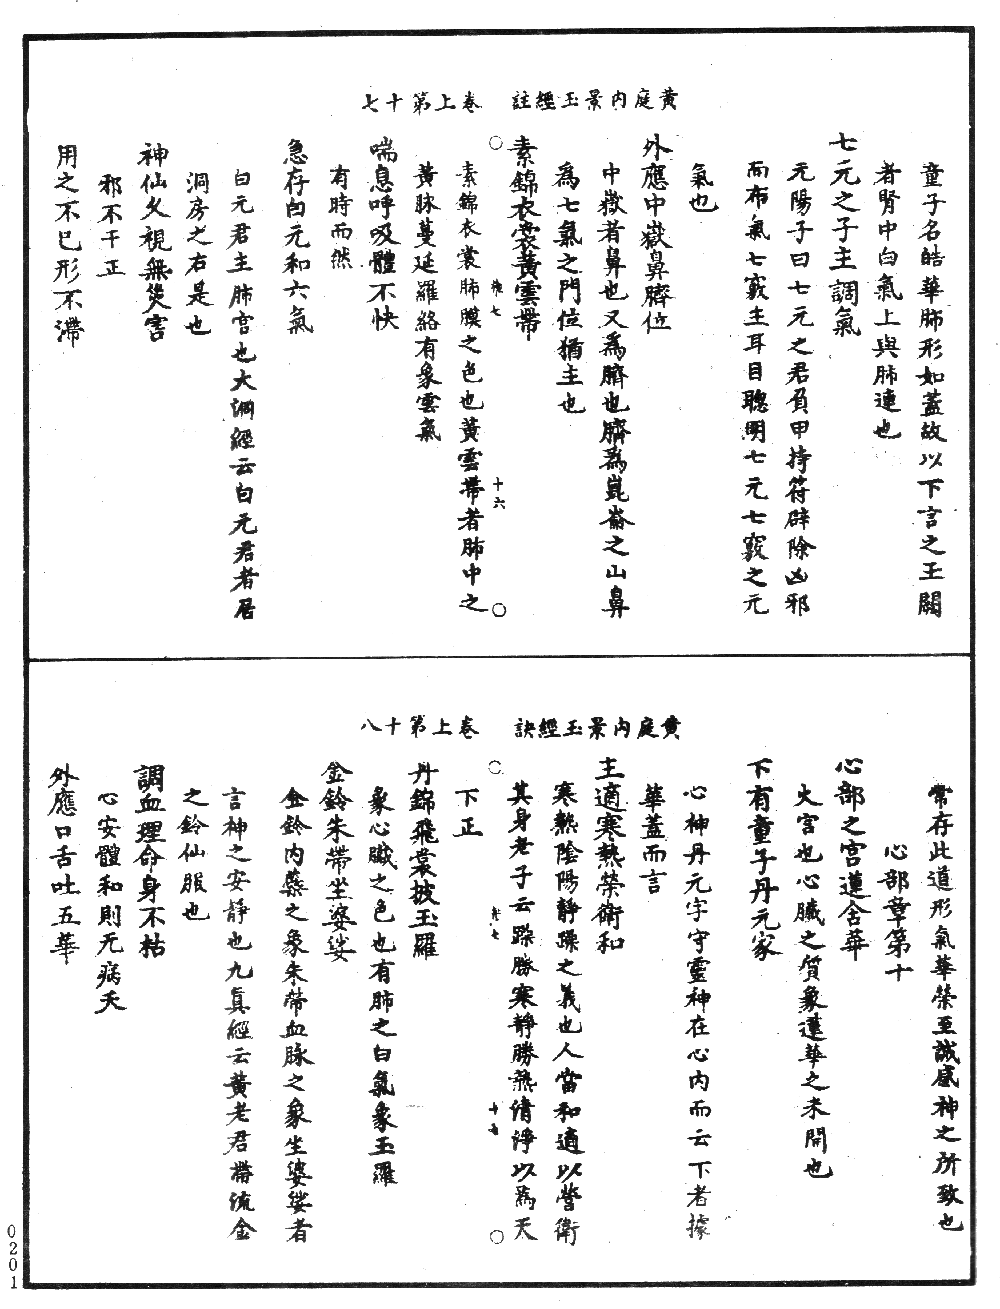 黃庭內景玉經註　卷上第十七
童子名皓華肺形如蓋故以下言之玉闕
者腎中白氣上與肺連也
七元之子主調氣
元陽子曰七元之君負甲持符辟除凶邪
而布氣七竅主耳目聰明七元七竅之元
氣也
外應中嶽鼻臍位
中嶽者鼻也又為臍也臍為崑崙之山鼻
為七氣之門位猶主也
素錦衣裳黃雲帶
十六
素錦衣裳肺膜之色也黃雲帶者肺中之
黃脉蔓延羅絡有象雲氣
喘息呼吸體不快
有時而然
急存白元和六氣
白元君主肺宮也大洞經云白元君者居
洞房之右是也
神仙久視無災害
邪不干正
用之不已形不滯
黃庭內景玉經訣　卷上第十八
常存此道形氣華榮至誠感神之所致也
心部章第十
心部之宮蓮含華
火宮也心臟之質象蓮華之未開也
下有童子丹元家
心神丹元字守靈神在心內而云下者據
華蓋而言
主適寒熱榮衛和
寒熱陰陽靜躁之義也人當和適以營衛
其身老子云躁勝寒靜勝熱清淨以為天
下正
丹錦飛裳披玉羅
象心臟之色也有肺之白氣象玉羅
金鈴朱帶坐婆娑
金鈴內蘂之象朱帶血脉之象坐婆娑者
言神之安靜也九真經云黃老君帶流金
之鈴仙服也
調血理命身不枯
心安體和則无病夭
外應口舌吐五華
0201